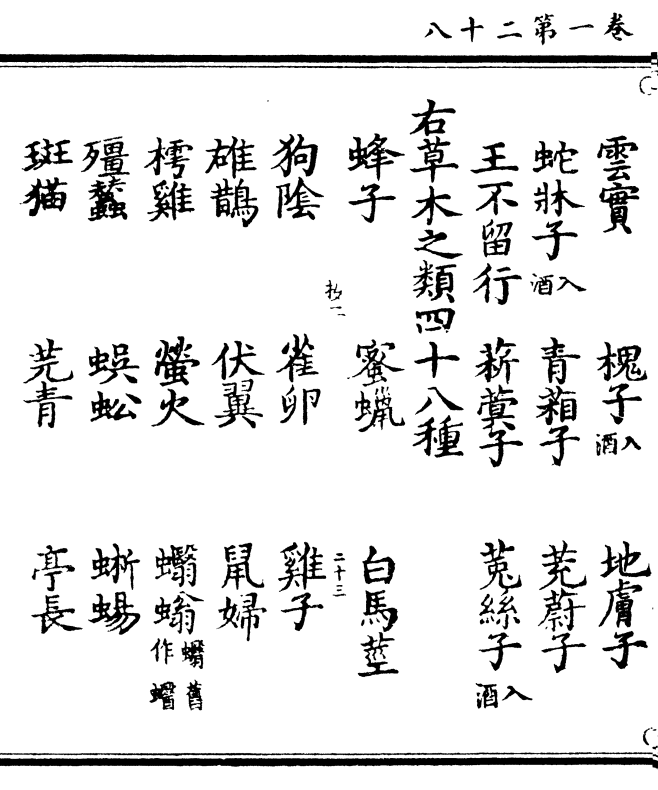 卷一第二十八
雲實 槐子入酒 地膚子
蛇牀子入酒 青葙子 茺蔚子
王不留行 菥蓂子 菟絲子入酒
右草木之類四十八種
蜂子 蜜蠟 白馬莖
二十三
狗陰 雀卵 雞子
雄鵲 伏翼 鼠婦
樗雞 螢火 蠮螉蠮舊作
殭蠶 蜈蚣 蜥蜴
斑猫 芫青 亭長